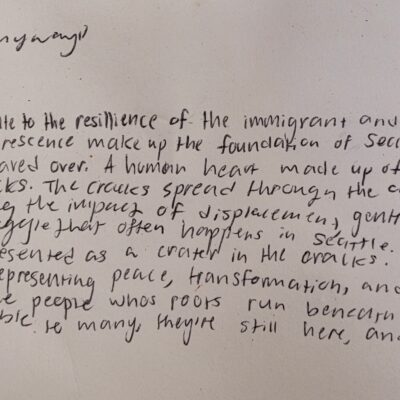 anyways
ute to the resillience of the immigrant and
rescence make up the foundation of Sea
aved over. A human heart made up of
cks. The cracks spread through the c
g the impact of displacement, gent
uggle that often happens in seattle.
esented as a crater in the cracks.
epresenting peace, transformation, and
e people whos roots run beneath
ble to many, they're still here, and